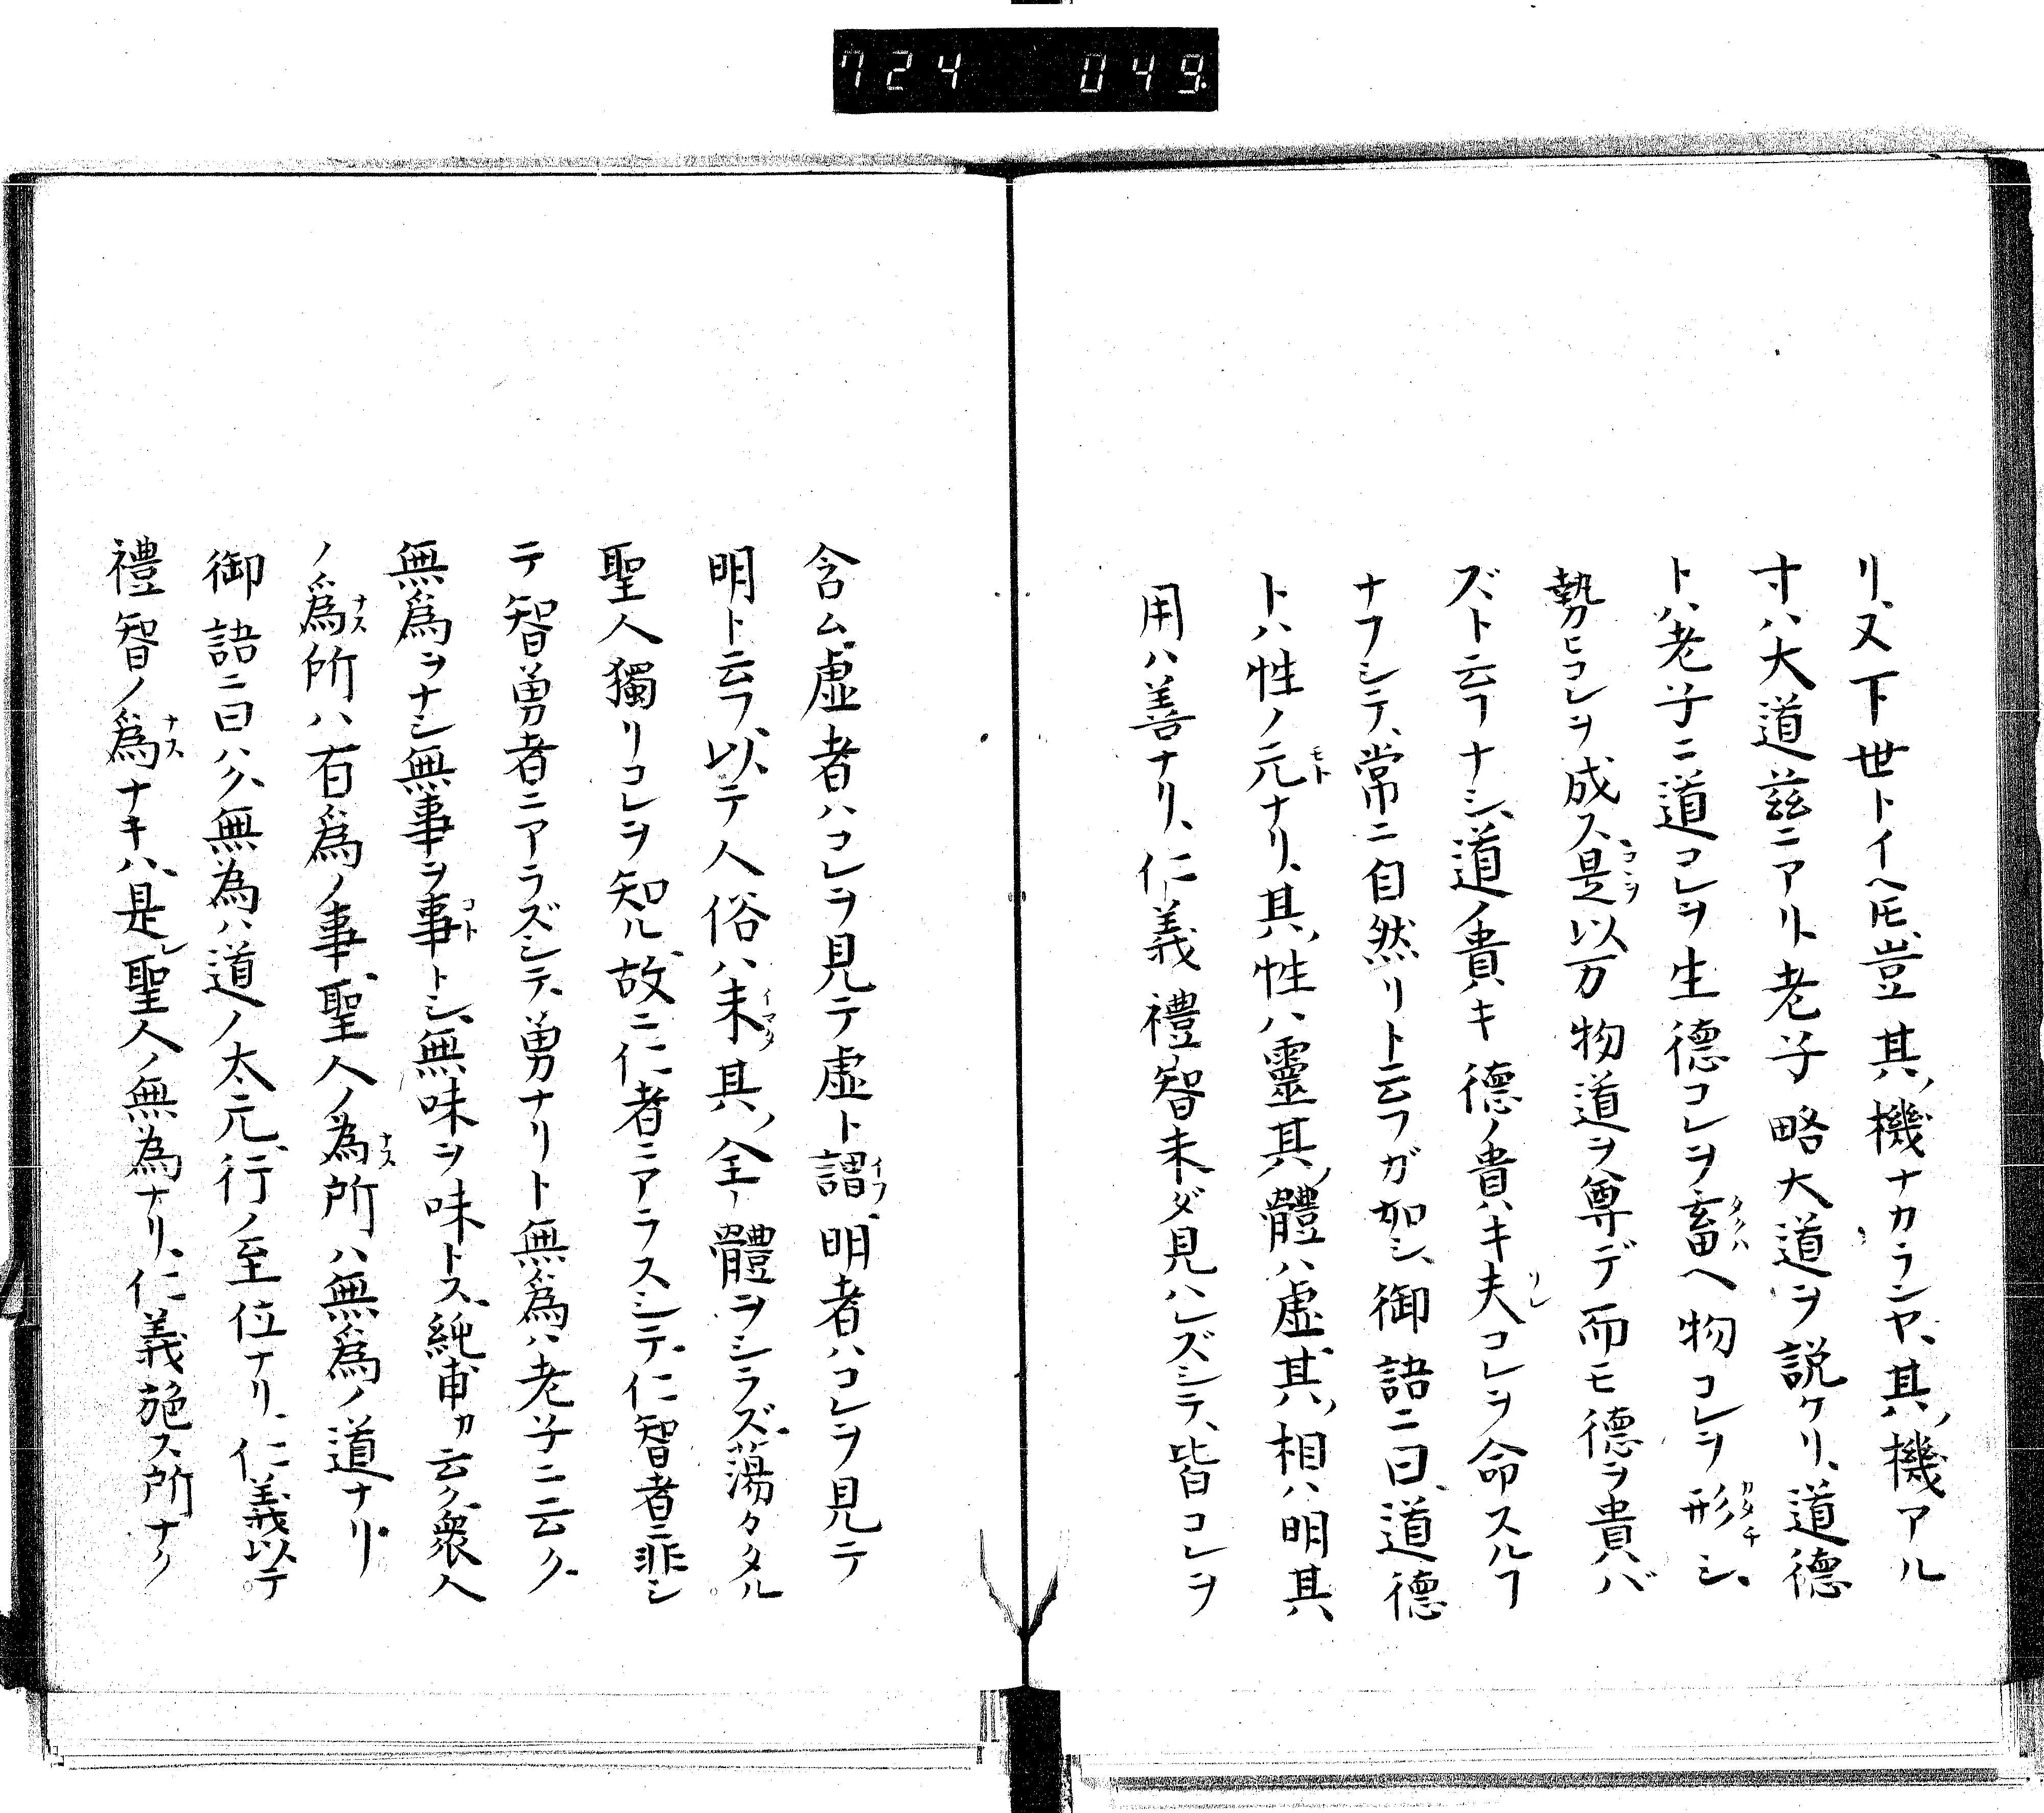 724 049
リ、又下世トイヘ𪜈、豈其ノ機ナカランヤ、其ノ機アル
寸ハ大道茲ニアリト老子略大道ヲ説ケリ、道德
トハ老子ニ道コレヲ生德コレヲ畜ヘ物コレヲ形シ、
勢ヒコレヲ成ス是以万物道ヲ尊デ而モ德ヲ貴バ
ズト云フナシ、道ノ貴キ德ノ貴キ夫コレヲ命スルフ
ナフシテ、常ニ自然リト云フガ如シ、御語ニ曰、道德
トハ性ノ元ナリ、其ノ性ハ靈其ノ體ハ虛、其ノ相ハ明其
用ハ善ナリ、仁義禮智未ダ見ハレズシテ、皆コレヲ
含ム、虛者ハコレヲ見テ虛ト謂、明者ハコレヲ見テ
明ト云フ、以テ人俗ハ未其ノ全ノ體ヲシラズ、蕩々タル
聖人獨リコレヲ知ル、故ニ仁者ニアラスシテ、仁智者ニ非シ
テ智勇者ニアラズシテ、勇ナリト無爲ハ老子ニ云ク、
無爲ヲナシ無事ヲ事トシ、無味ヲ味トス、純甫カ云ク、衆人
ノ爲所ハ有爲ノ事、聖人ノ為所ハ無爲ノ道ナリ
御語ニ曰ハク、無為ハ道ノ太元、行ノ至位ナリ、仁義以テ
禮智ノ爲ナキハ、是レ聖人ノ無為ナリ、仁義施ス所ナク